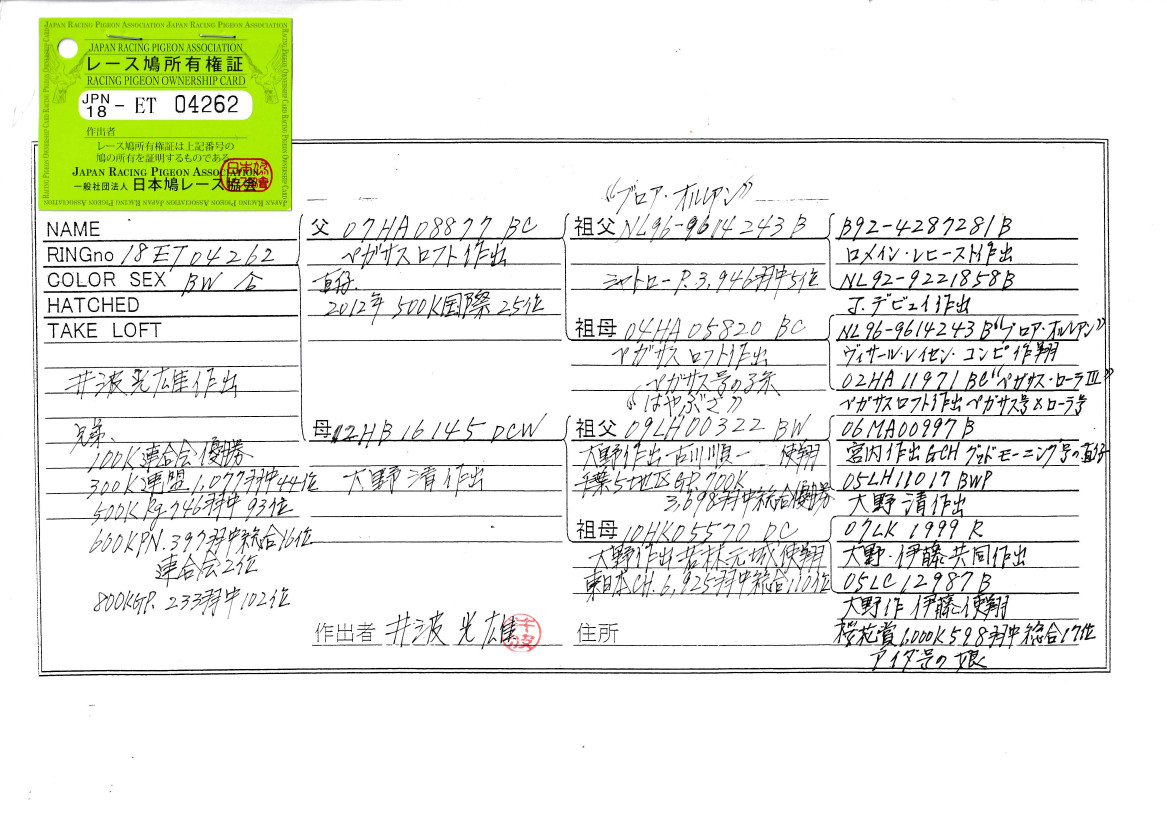 JAPAN RACING PIGEON ASSOCIATION JAPAN RACING PIGEON ASSOCIATION
JAPAN RACING PIGEON ASSOCIATION
レース鳩所有権証
RACING PIGEON OWNERSHIP CARD
JPN 18 - ET 04262
作出者
レース鳩所有権証は上記番号の
鳩の所有を証明するものである。
JAPAN RACING PIGEON ASSOCIATION
一般社団法人 日本鳩レース協会
NAME
RINGno 18ET04262
COLOR SEX BW 合
HATCHED
TAKE LOFT
井波光雄作出
兄弟、
100K連合会優勝
300K連盟1,077羽中44位
500K Rg.746羽中93位
600KPN.397羽中総合16位
連合会2位
800KGP.233羽中102位
父 07HA08877 BC
ペガサスロフト作出
直仔.
2012年500K国際25位
母 12HB16145 DCW
大野清作出
作出者 井波光雄
"ブロア・オルレアン"
祖父 NL96-9614243B
シャトローR.3,946羽中5位
祖母 04HA05820 BC
ペガサスロフト作出
ペガサス号の孫
"はやぶさ"
祖父 09LH00322 BW
大野作出 古川順一 使翔
千葉5地区GP.700K
3,698羽中総合優勝
祖母 10HK05570 DC
大野作出若林元城使翔
東日本CH.6,925羽中総合110位
住所
B92-4287281B
ロメイン・レヒースト作出
NL92-9221858B
J.デビュイ作出
NL96-9614243B"ブロア・オルレアン"
ヴィサール・レイセン・コンビ作翔
02HA11971 BC"ペガサス・ローラIII"
ペガサスロフト作出ペガサス号×ローラ号
06MA00997B
宮内作出GCHグッドモーニング号の直仔
05LH11017BWP
大野清作出
07LK1999R
大野・伊藤共同作出
05LC12987B
大野作 伊藤使翔
桜花賞1,000K598羽中総合17位
アイダ号の娘